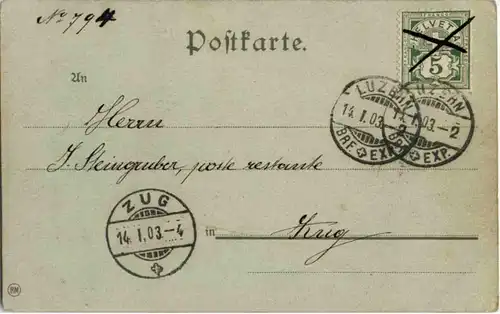 No 794
Postkarte.
HELVETIA
5
An
LUZERN
LUZERN
14. I. 03.
14. I. 03. – 2
BRF. EXP.
BRF. EXP.
Herrn
J. Steingruber, poste restante
ZUG
14. I. 03. – 4
in Zug
RM